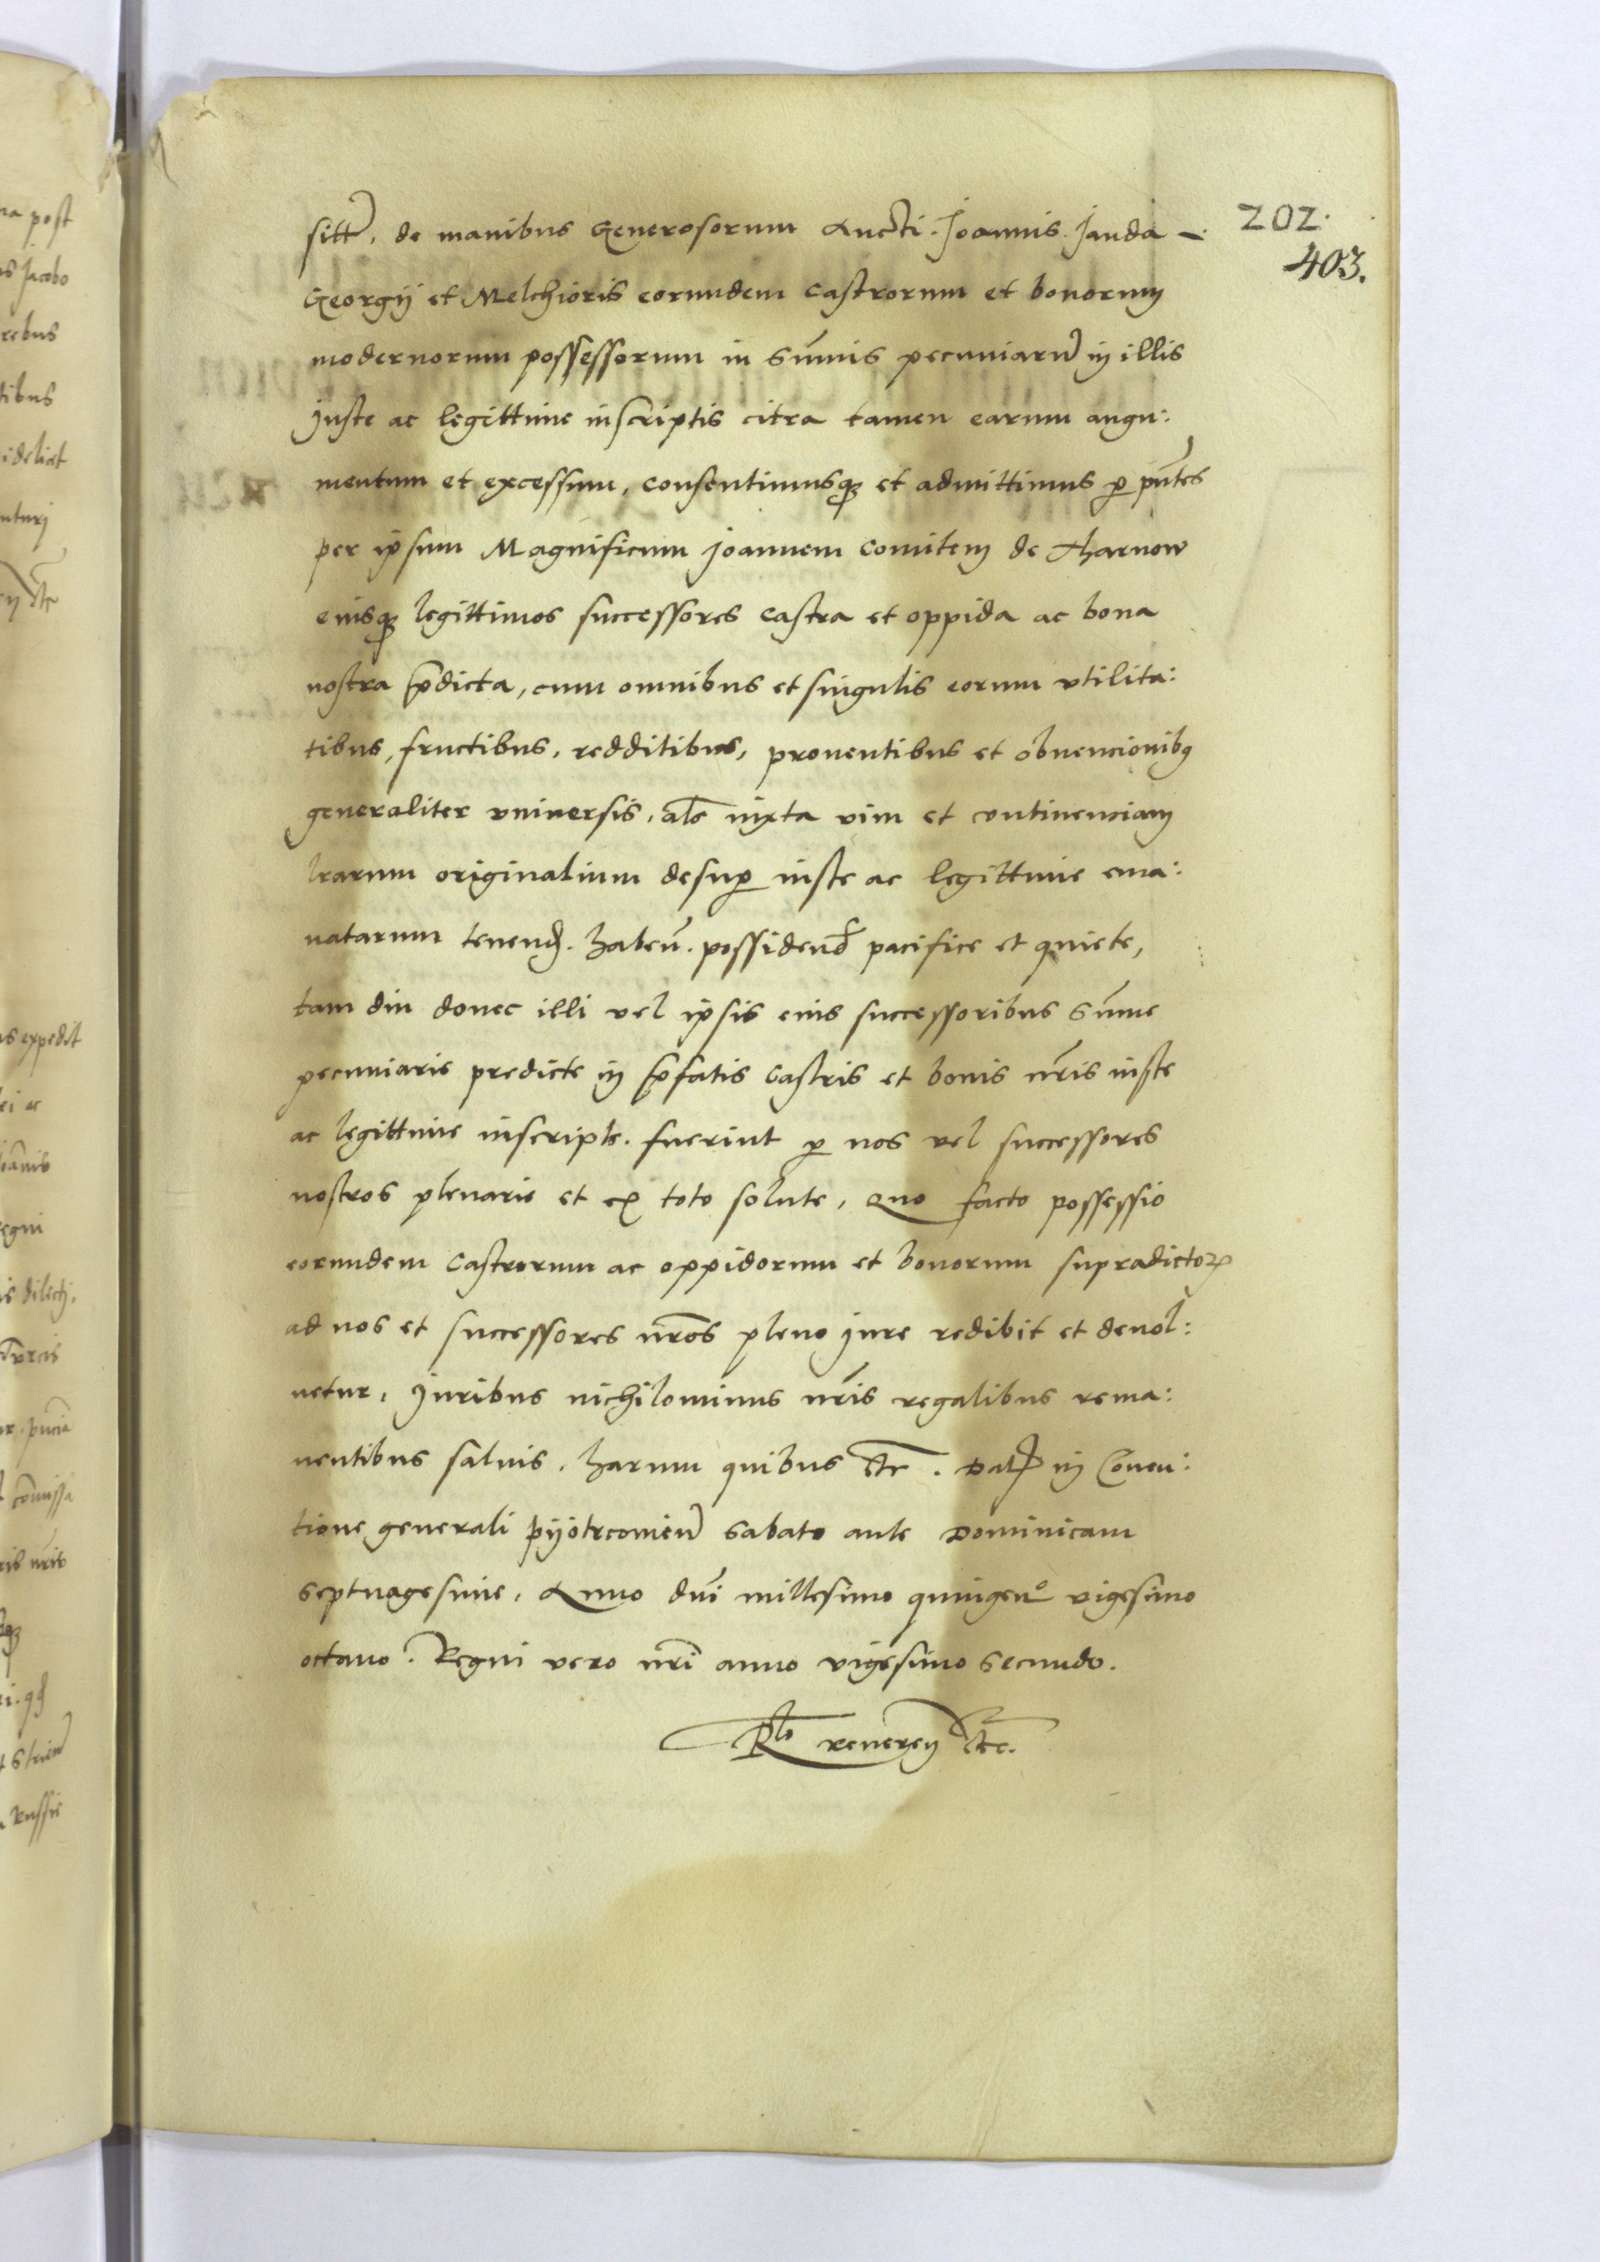 202.
403.
sitt̃. de manibus Generosorum Ancti. Joannis. Janda –
Georgij et Melchioris eorundem castrorum et bonorum
modernorum possessorum in sum̃is pecuniarũ in illis
juste ac legittime inscriptis citra tamen earum augu:
mentum et excessum, consentimusq3 et admittimus p pñtes
per ipsum Magnificum Joannem comitem de Tharnow
eiusq3 legittimos successores castra et oppida ac bona
nostra p̃dicta, cum omnibus et singulis eorum vtilita:
tibus, fructibus, redditibus, prouentibus et obuencionibq
generaliter vniuersis, als iuxta vim et continenciam
lrarum originalium desup iuste ac legittime ema:
natarum tenend. habeñ. possidend pacifice et quiete,
tam diu donec illi vel ipsis eius successoribus sum̃e
pecuniarie predicte in p̃fatis castris et bonis nr̃is iuste
ac legittime inscripte. fuerint p nos vel successores
nostros plenarie et ex toto solute, Quo facto possessio
eorundem castrorum ac oppidorum et bonorum supradictoꝝ
ad nos et successores nr̃os pleno jure redibit et deuol:
uetur, Juribus nichilominus nr̃is regalibus rema:
nentibus saluis. harum quibus etc. Dat in Conuen:
tione generali pijotrcouień sabato ante Dominicam
septuagesime, Anno dñi millesimo quingeno vigesimo
octauo. Regni vero nr̃i anno vigesimo secundo.
Rlo reueren etc.